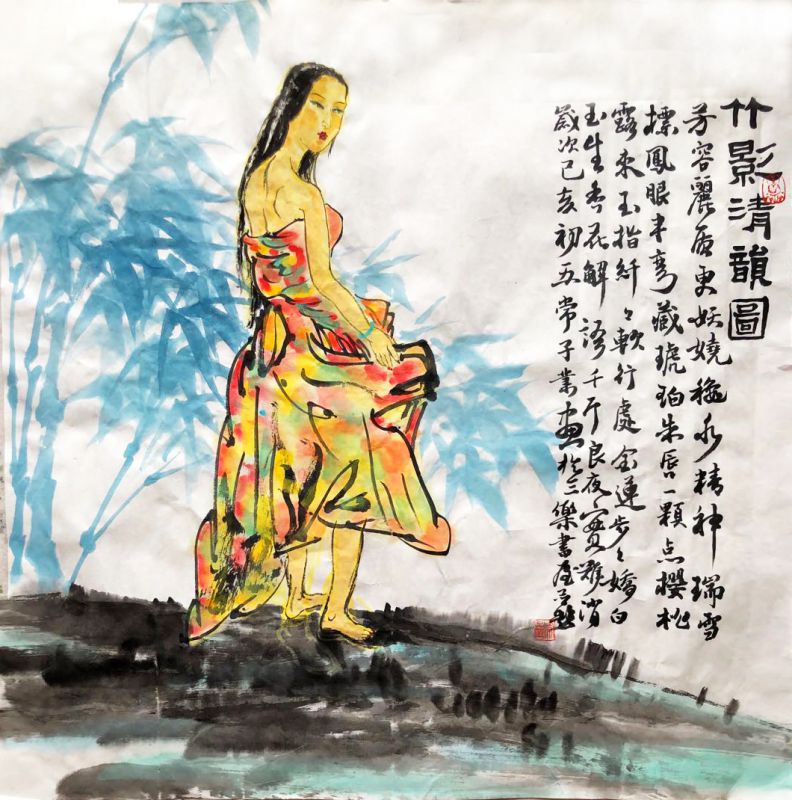 竹影清韻圖
芳容麗质更妖嬈秋水精神瑞雪
標鳳眼半彎藏琥珀朱唇一顆点櫻桃
露来玉指纤々軟行處金蓮步々嬌白
玉生香花解語千斤良夜實難消
歲次己亥初五常子業画於三樂書屋